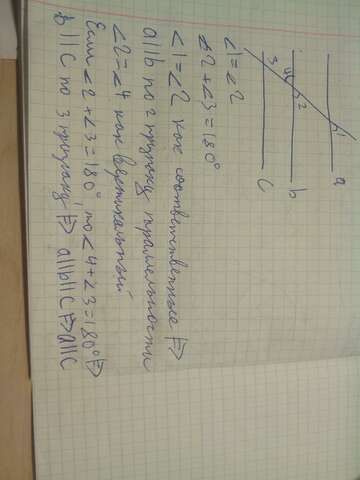 ∠1=∠2
∠2+∠3=180°
∠1=∠2 как соответственные ⇒
a||b по 2 признаку параллельности
∠2=∠4 как вертикальный
Если ∠2+∠3=180°, то ∠4+∠3=180° ⇒
b||c по 3 признаку ⇒ a||b||c ⇒ a||c
3 4 2 1
a
b
c